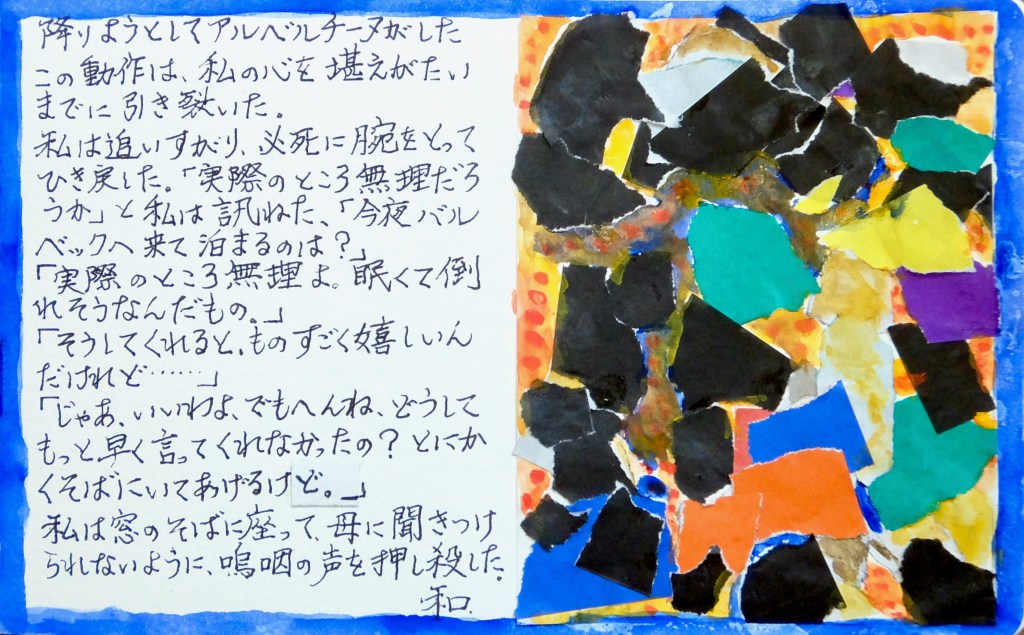 降りようとしてアルベルチーヌがした
この動作は、私の心を堪えがたい
までに引き裂いた。
私は追いすがり、必死に腕をとって
ひき戻した。「実際のところ無理だろ
うか」と私は訊ねた、「今夜バル
ベックへ来て泊まるのは？」
「実際のところ無理よ。眠くて倒
れそうなんだもの。」
「そうしてくれると、ものすごく嬉しいん
だけれど……」
「じゃあ、いいわよ、でもへんね、どうして
もっと早く言ってくれなかったの？とにか
くそばにいてあげるけど。」
私は窓のそばに座って、母に聞きつけ
られしないように、嗚咽の声を押し殺した。
和